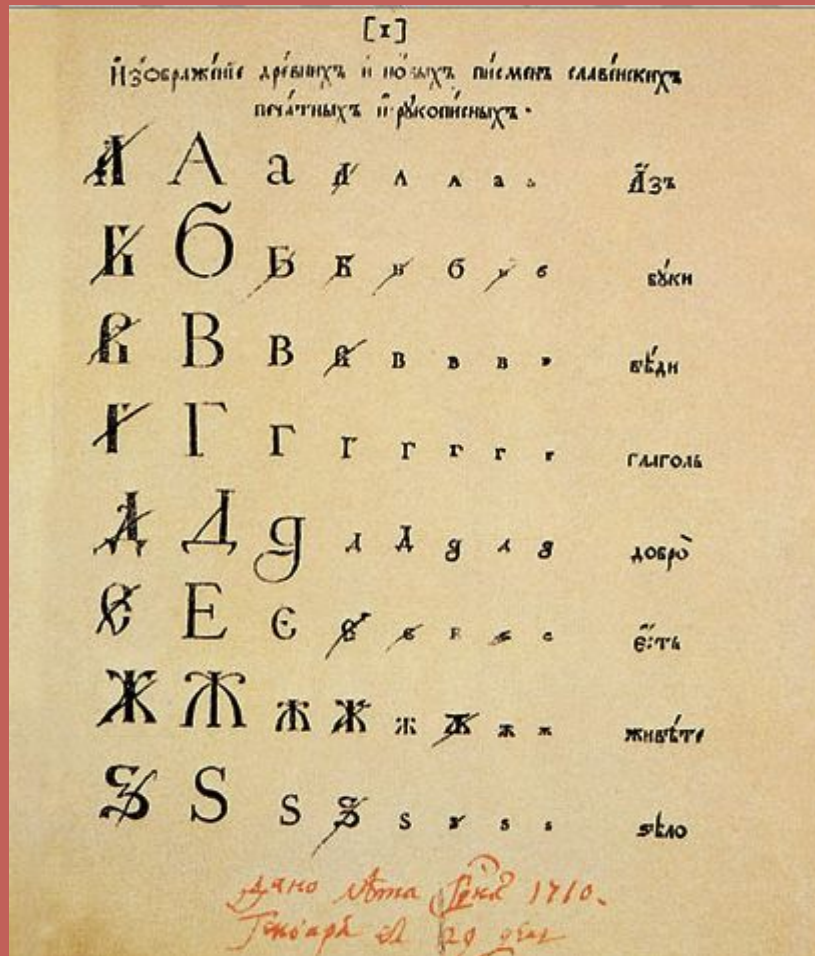 [1]
Изѡбраже́нїе дре́внихъ и но́выхъ пи́сменъ славе́нскихъ
печа́тныхъ и рꙋкопи́сныхъ.
А А а А А А а а А҆́зъ
Б Б Б Б Б б Б б бꙋ́ки
В В В В В В В В вѣ́ди
Г Г Г Г Г Г Г Г глаго́ль
Д Д д Д Д д Д д добро̀
Є Е Є Є Є Е Є Є є҆́сть
Ж Ж Ж Ж Ж Ж Ж Ж живѣ́те
Ѕ Ѕ Ѕ Ѕ Ѕ Ѕ Ѕ Ѕ ѕѣло̀
дано лѣта 1710.
Генваря 29